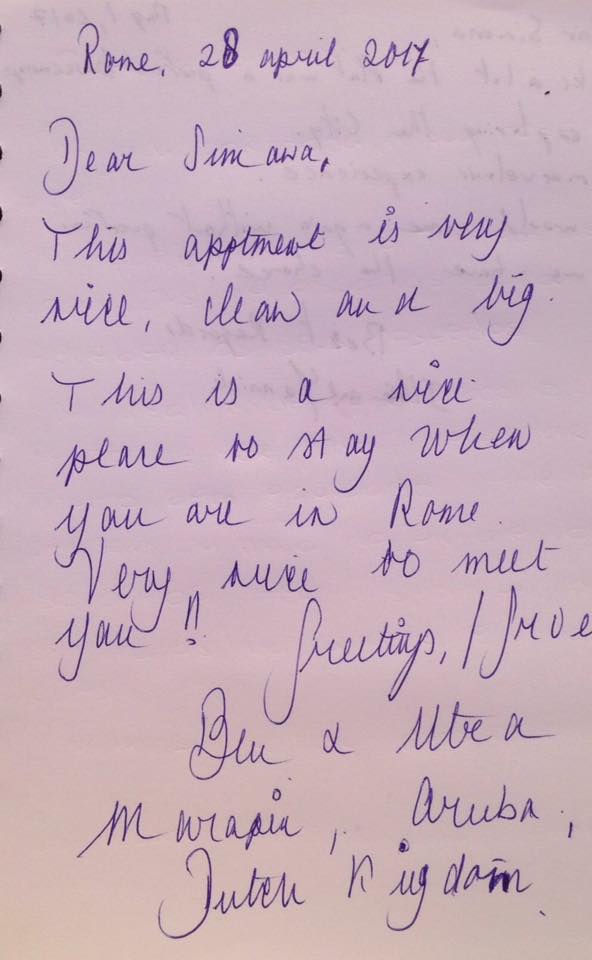 Rome, 28 april 2017
Dear Simona,
This apptment is very
nice, clean and big.
This is a nice
place to stay when
you are in Rome.
Very nice to meet
you!! Greetings,
Ben &
Aruba,
Dutch Kingdom.